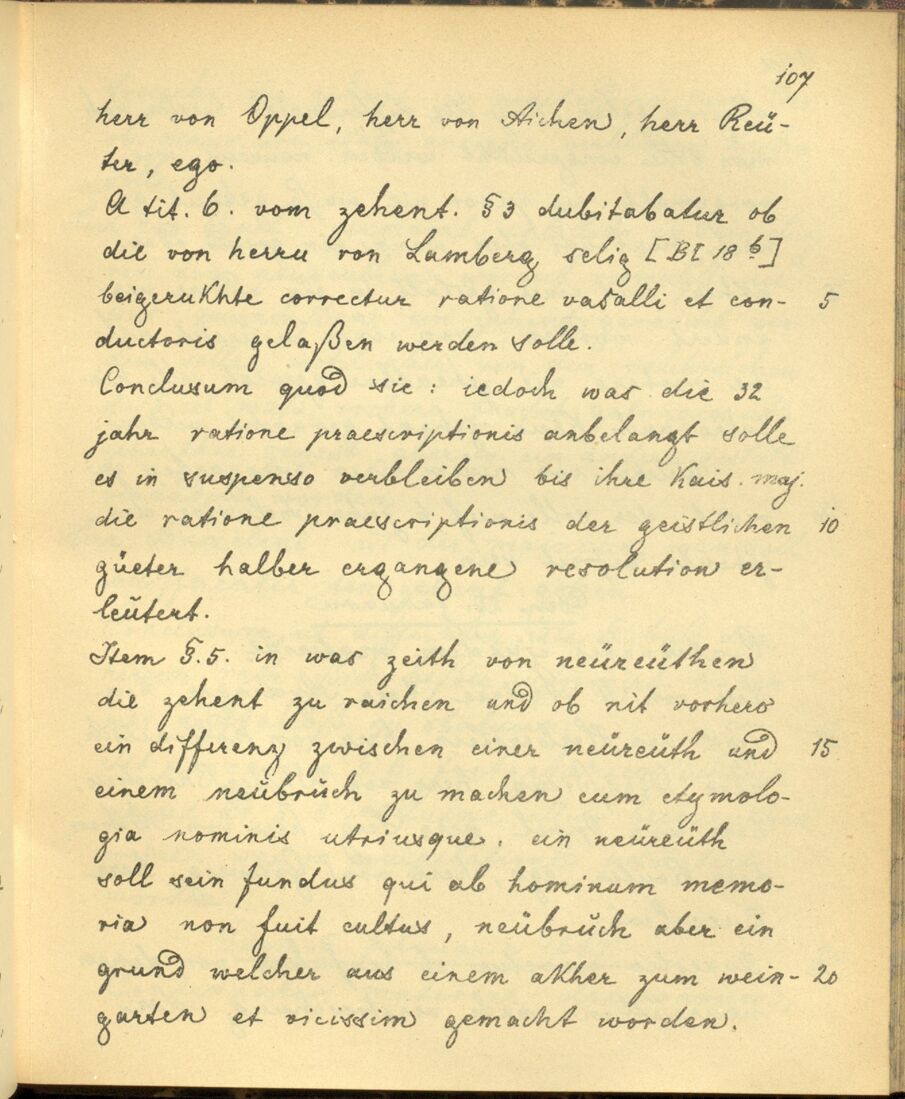 107
herr von Oppel, herr von Aichen, herr Reü-
ter, ego.
A tit. 6. vom zehent. §3 dubitabatur ob
die von herrn von Lamberg selig [Bl 18 b]
beigerukhte correctur ratione vasalli et con- 5
ductoris gelaßen werden solle.
Conclusum quod sic: iedoch was die 32
jahr ratione praescriptionis anbelangt solle
es in suspenso verbleiben bis ihre Kais. maj.
die ratione praescriptionis der geistlichen 10
güeter halber ergangene resolution er-
leütert.
Item §.5. in was zeith von neüreüthen
die zehent zu raichen und ob nit vorhero
ein differenz zwischen einer neüreüth und 15
einem neübrüch zu machen cum etymolo-
gia nominis utriusque. ein neüreüth
soll sein fundus qui ab hominum memo-
ria non fuit cultus, neübrüch aber ein
grund welcher aus einem akher zum wein- 20
garten et vicissim gemacht worden.